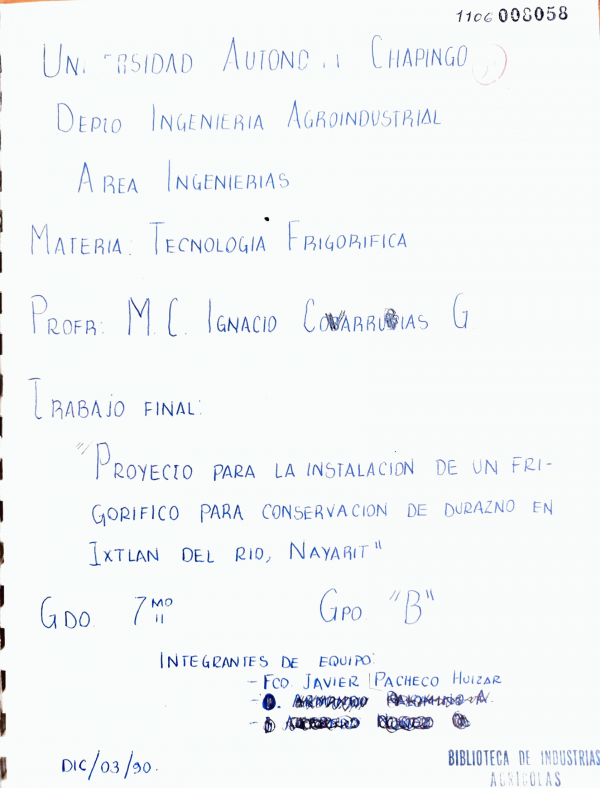 1106 008058
UNIVERSIDAD AUTONOMA CHAPINGO
DEPTO INGENIERIA AGROINDUSTRIAL
AREA INGENIERIAS
MATERIA: TECNOLOGIA FRIGORIFICA
PROFR: M.C. IGNACIO COVARRUBIAS G
TRABAJO FINAL:
"PROYECTO PARA LA INSTALACION DE UN FRI-
GORIFICO PARA CONSERVACION DE DURAZNO EN
IXTLAN DEL RIO, NAYARIT"
GDO. 7MO GPO "B"
INTEGRANTES DE EQUIPO:
- FCO. JAVIER PACHECO HUIZAR
DIC/03/90.
BIBLIOTECA DE INDUSTRIAS
AGRICOLAS